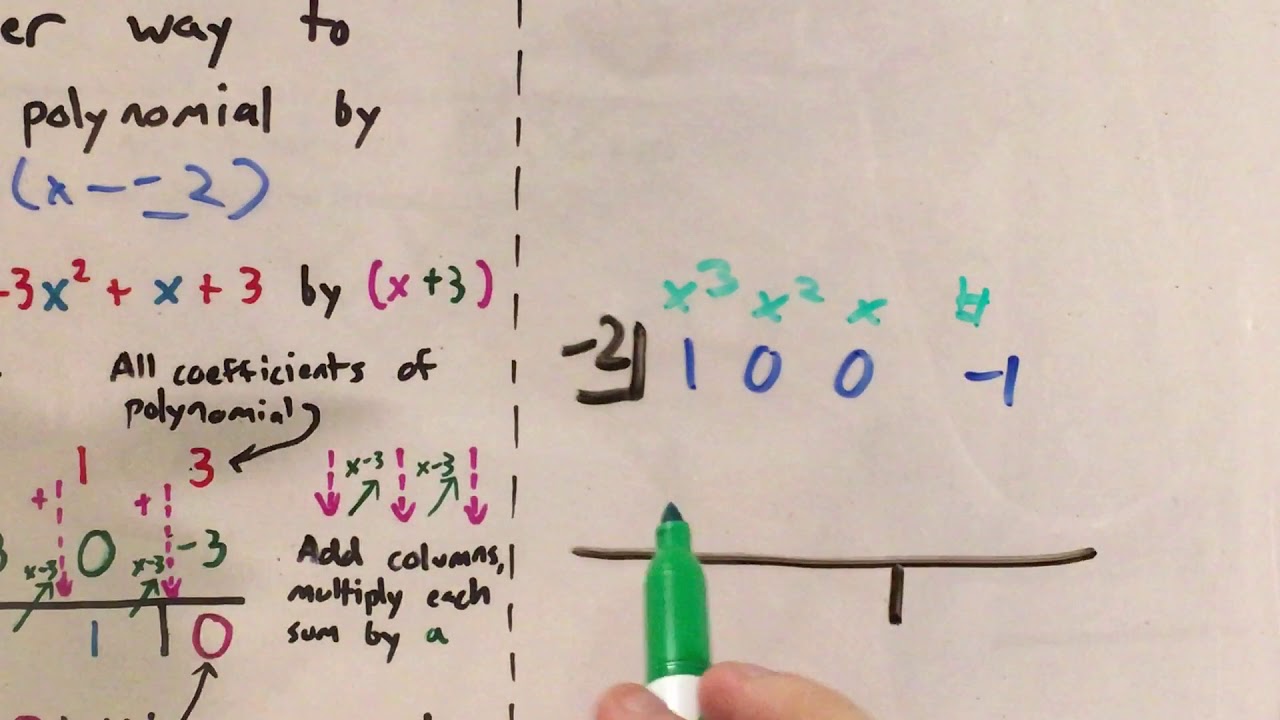 er way to
polynomial by
(x--2)
-3x² + x + 3 by (x+3)
All coefficients of
polynomial
1 3
+ +
x-3 x-3
0 -3
x-3 x-3
1 0
Add columns,
multiply each
sum by a
x³ x² x #
-2 1 0 0 -1